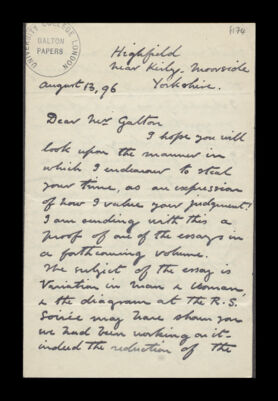 UNIVERSITY COLLEGE LONDON
GALTON
PAPERS
H74
Highfield
near Kirby Moorside
Yorkshire.
August 13, 96
Dear Mr Galton
I hope you will
look upon the manner in
which I endeavour to steal
your time, as an expression
of how I value your judgment!
I am sending with this a
proof of one of the essays in
a forthcoming volume.
The subject of the essay is
Variation in Man & Woman,
& the diagram at the R.S.
Soirée may have shown you
we had been working on it –
indeed the reduction of the